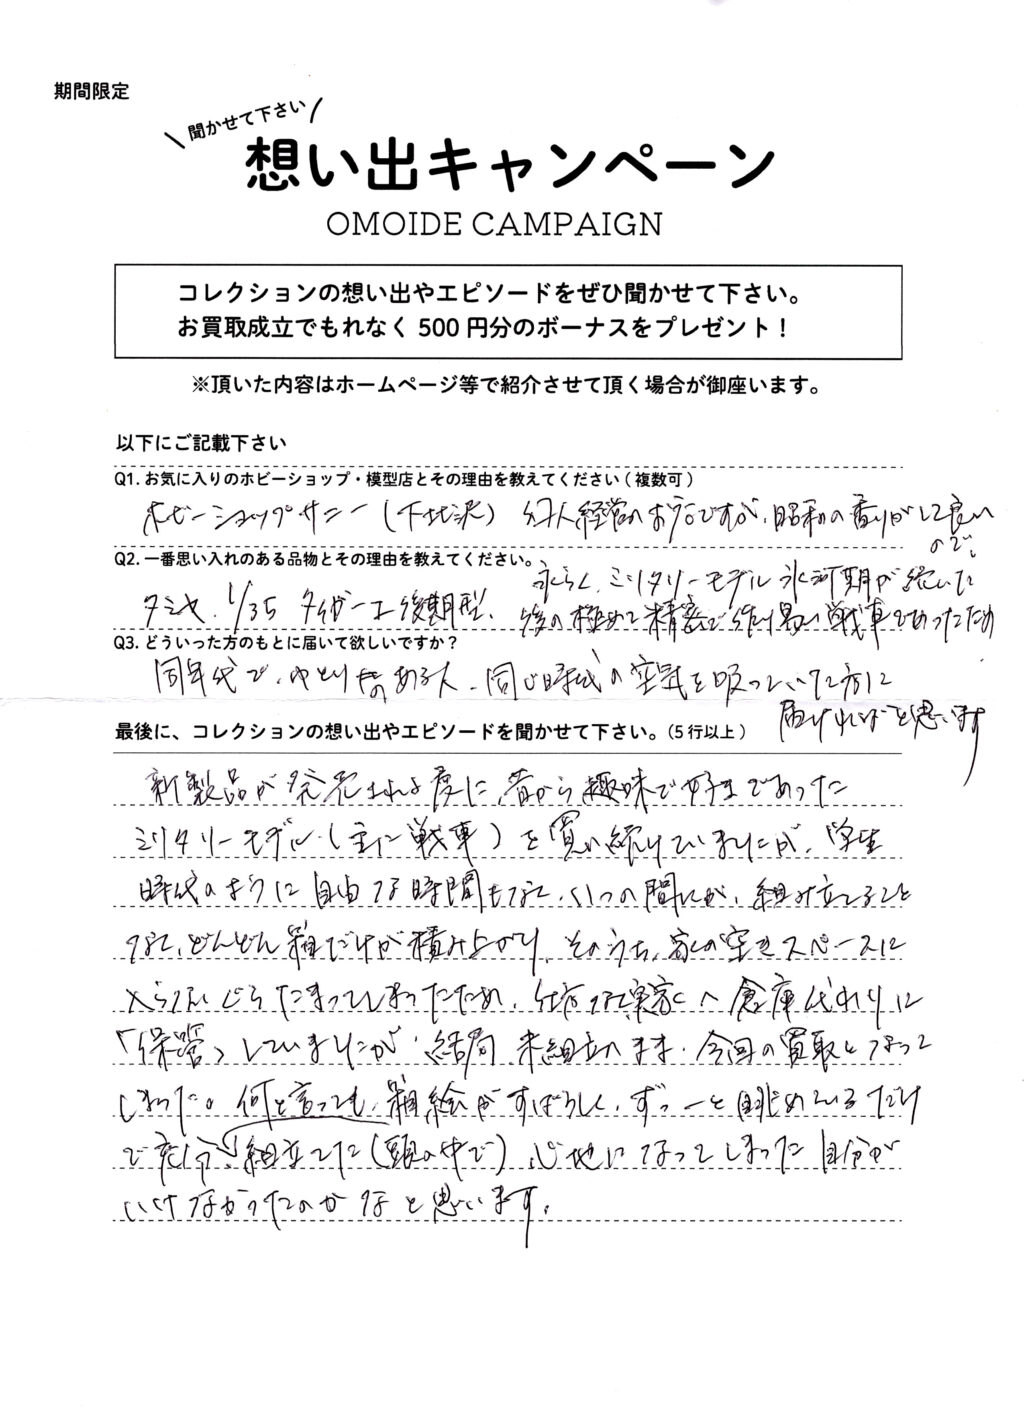 期間限定
聞かせて下さい
想い出キャンペーン
OMOIDE CAMPAIGN
コレクションの想い出やエピソードをぜひ聞かせて下さい。
お買取成立でもれなく 500 円分のボーナスをプレゼント！
※頂いた内容はホームページ等で紹介させて頂く場合が御座います。
以下にご記載下さい
Q1. お気に入りのホビーショップ・模型店とその理由を教えてください ( 複数可 )
ホビーショップサニー (下北沢) 経営のお店ですが、昭和の香りがして良い
ので。
Q2. 一番思い入れのある品物とその理由を教えてください。
永らく、ミリタリーモデル氷河期が続いた
タミヤ、1/35 タイガーI後期型、 後の極めて精密で作り易い戦車であったため
Q3. どういった方のもとに届いて欲しいですか？
同年代で、ゆとりのある人、同じ時代の空気を吸っていた方に
届けばと思います
最後に、コレクションの想い出やエピソードを聞かせて下さい。(5 行以上)
新製品が発売される度に、昔から趣味で好きであった
ミリタリーモデル(主に戦車)を買い続けていましたが、学生
時代のように自由な時間もなく、いつの間にか、組み立てること
なく、どんどん箱だけが積み上がり、そのうち、家の空きスペースに
入らないぐらいたまってしまったため、仕方なく実家へ倉庫代わりに
「保管」していましたが、結局、未組立のまま、今回の買取となって
しまった。何と言っても、箱絵がすばらしく、ずっーと眺めているだけ
で充分、組立てた(頭の中で)、心地になってしまった自分が
いけなかったのかなと思います。